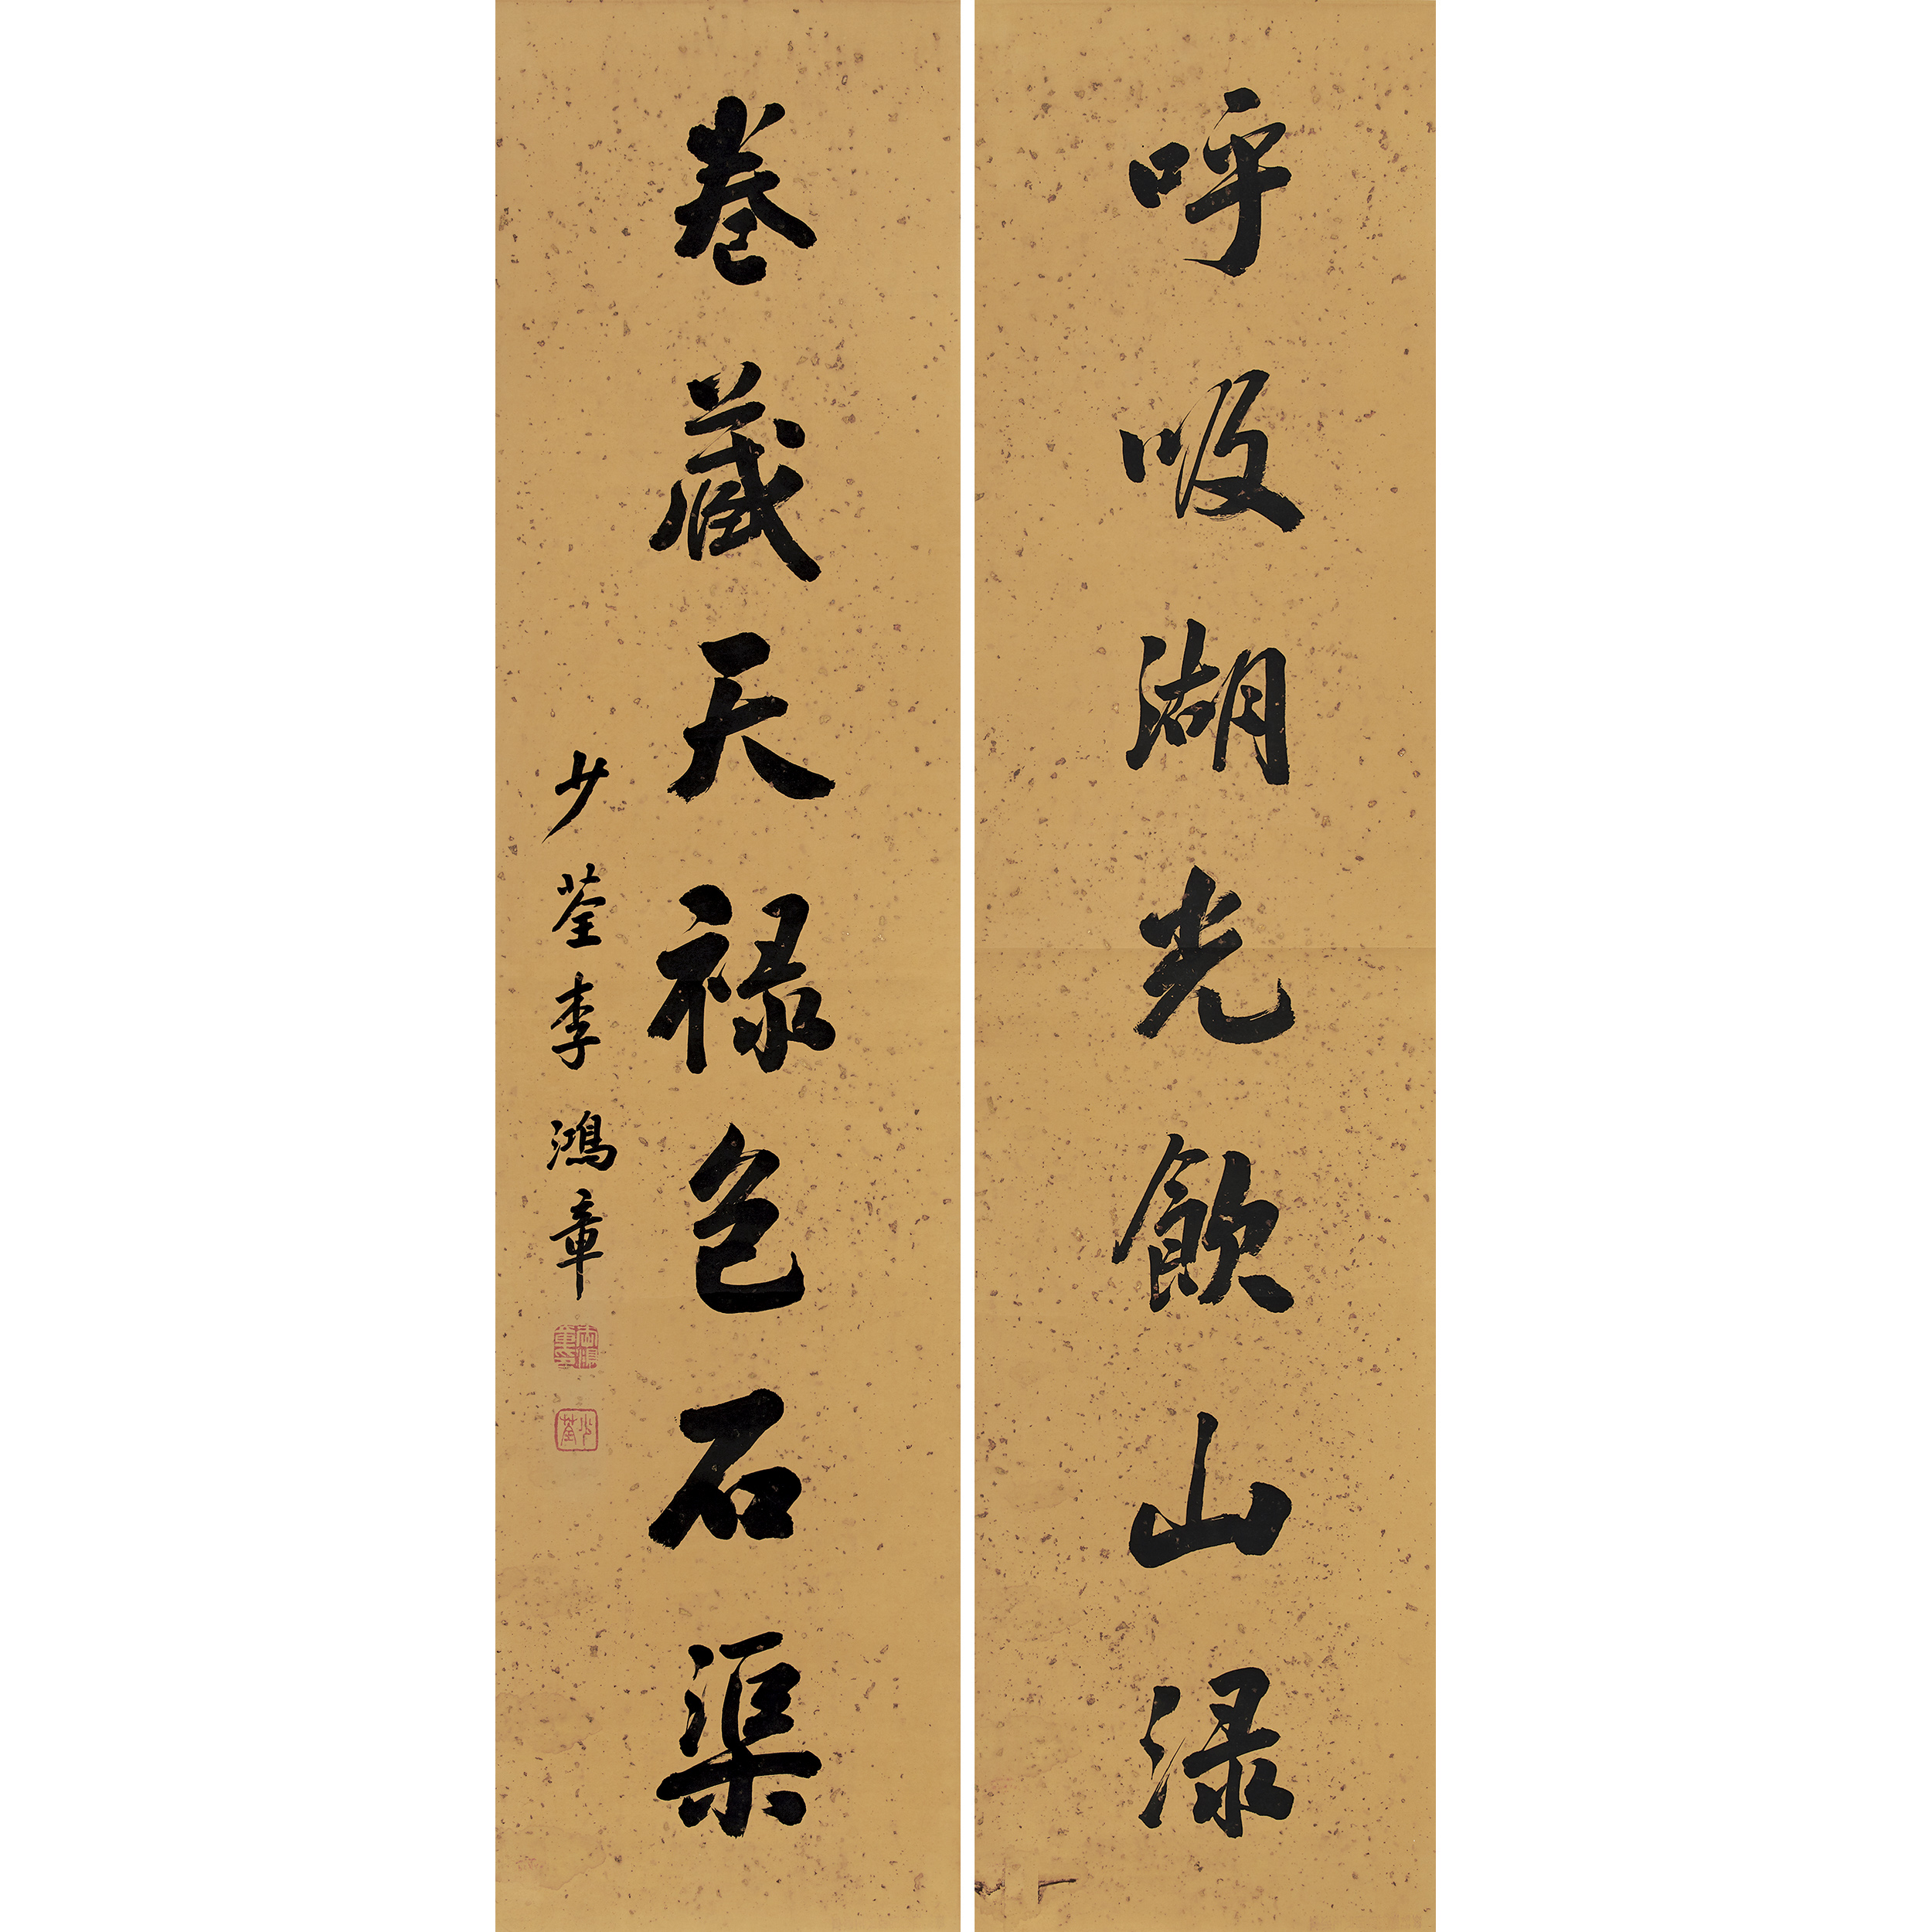 呼吸湖光飲山渌
卷藏天禄包石渠
少荃李鴻章
李鴻章印
少荃